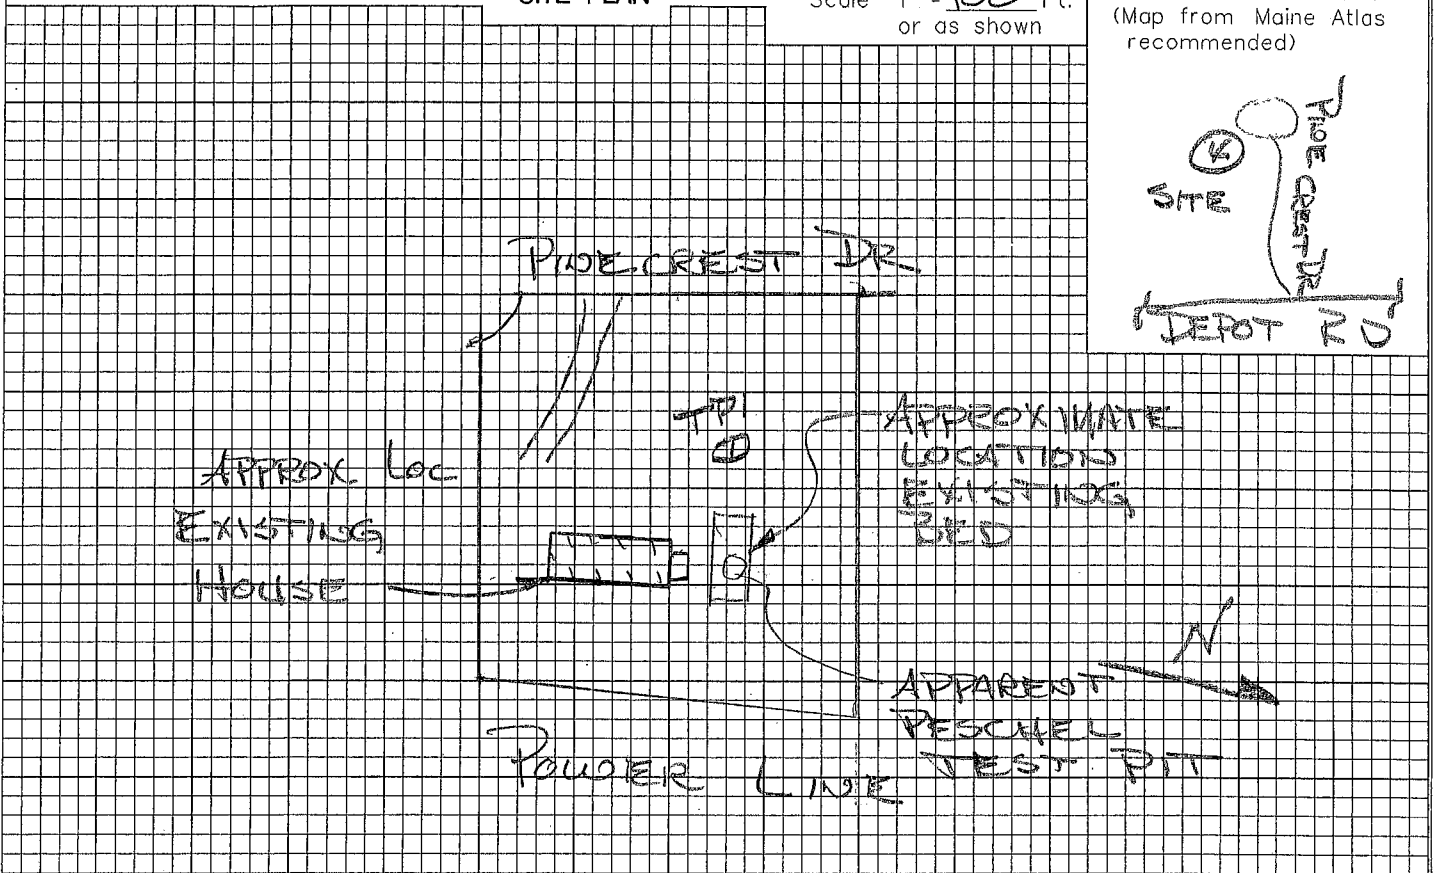 SITE PLAN
Scale 1" = 100 Ft.
or as shown
(Map from Maine Atlas
recommended)
SITE
PINE CREST DR
DEPOT RD
PINE CREST DR
TP1
APPROXIMATE
LOCATION
EXISTING
BED
APPROX LOC
EXISTING
HOUSE
N
APPARENT
PESCHEL
TEST PIT
POWER LINE